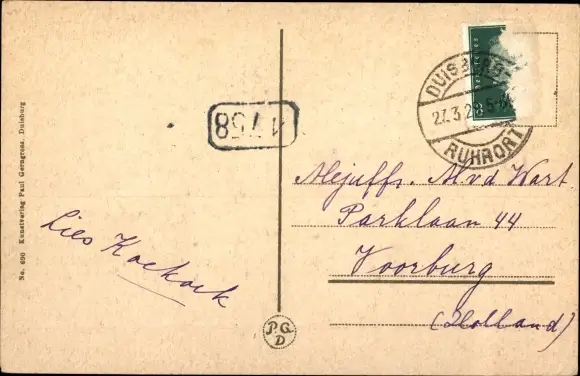 No. 690 Kunstverlag Paul Gerngross, Duisburg
1758
Lies Koekoek
P.G.
D
DUISBURG
27.3.28.5-6
RUHRORT
Mejuffr. M v d Wart.
Parklaan 44
Voorburg
(Holland)